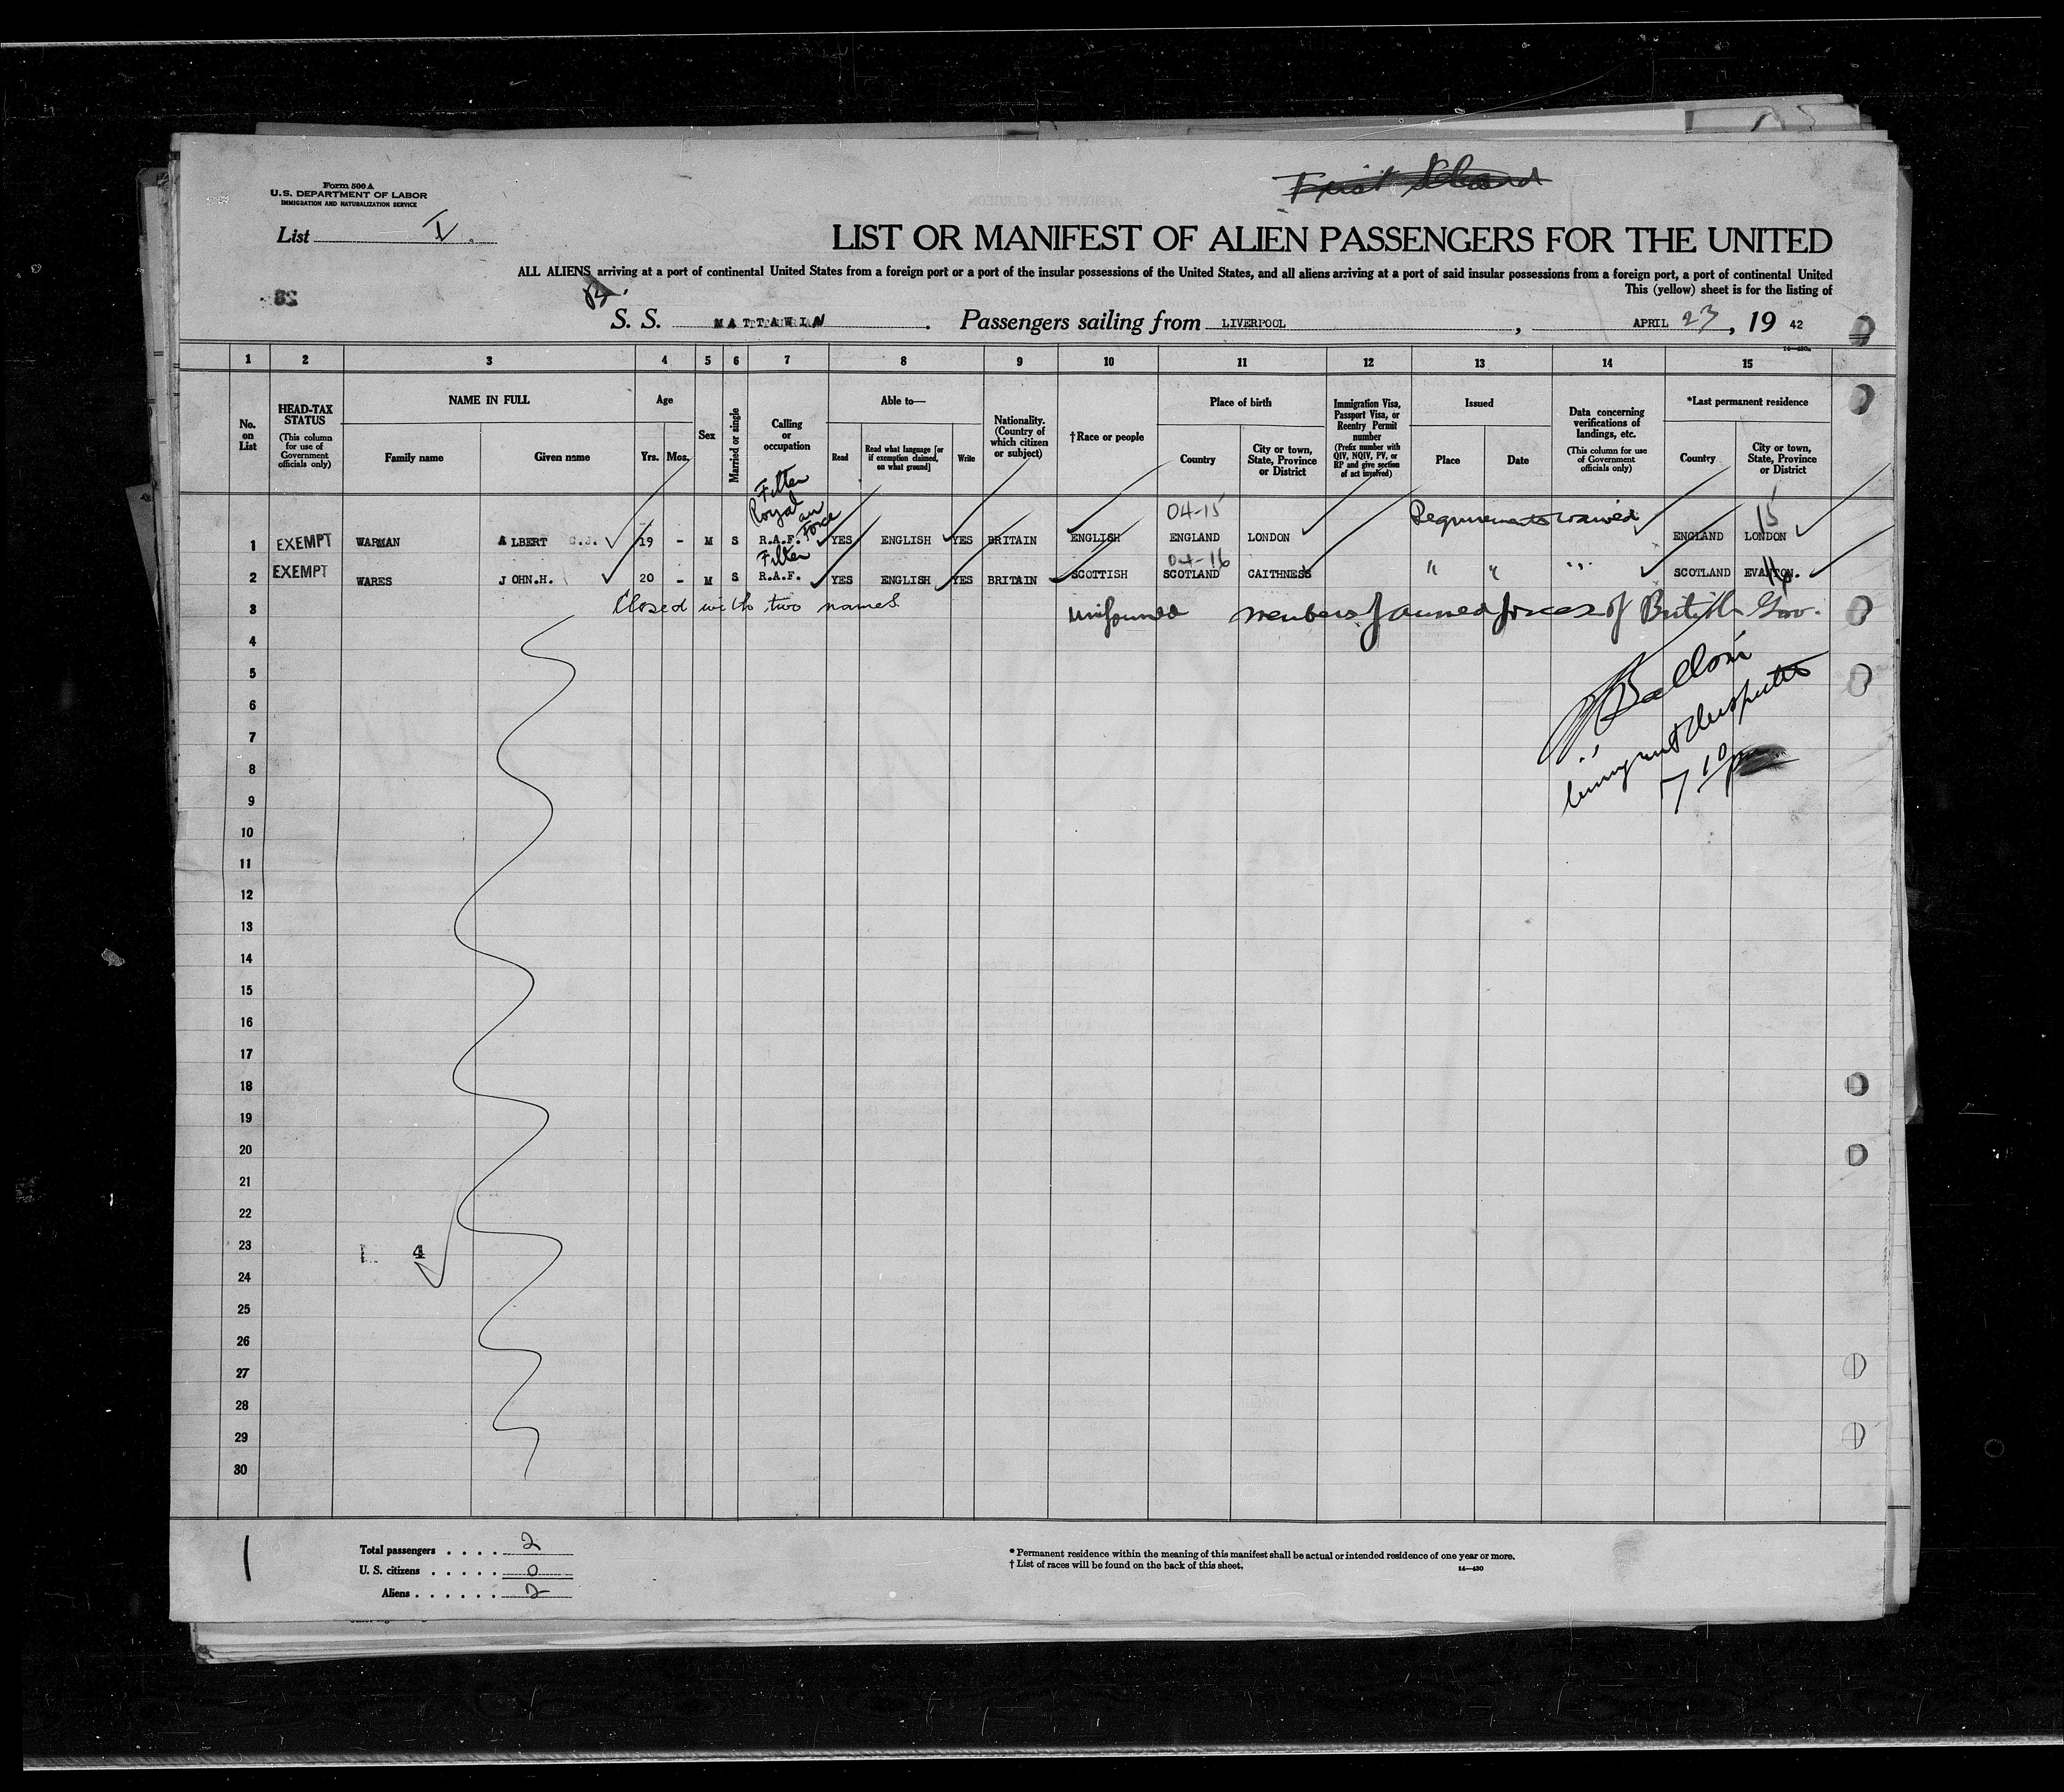 Form 500 A
U.S. DEPARTMENT OF LABOR
IMMIGRATION AND NATURALIZATION SERVICE
List I.
LIST OR MANIFEST OF ALIEN PASSENGERS FOR THE UNITED
ALL ALIENS arriving at a port of continental United States from a foreign port or a port of the insular possessions of the United States, and all aliens arriving at a port of said insular possessions from a foreign port, a port of continental United
This (yellow) sheet is for the listing of
Br.
S. S. MATTAWIN. Passengers sailing from LIVERPOOL, APRIL 23, 19 42
14—430a
1 2 3 4 5 6 7 8 9 10 11 12 13 14 15
No. on List
HEAD-TAX STATUS (This column for use of Government officials only)
NAME IN FULL
Family name
Given name
Age
Yrs. Mos.
Sex
Married or single
Calling or occupation
Able to—
Read
Read what language [or if exemption claimed, on what ground]
Write
Nationality. (Country of which citizen or subject)
†Race or people
Place of birth
Country
City or town, State, Province or District
Immigration Visa, Passport Visa, or Reentry Permit number (Prefix number with QIV, NQIV, PV, or RP and give section of act involved)
Issued
Place
Date
Data concerning verifications of landings, etc. (This column for use of Government officials only)
*Last permanent residence
Country
City or town, State, Province or District
Fitter
Royal air Force
04-15
Requirements waived
15
1 EXEMPT WARMAN ALBERT C.J. 19 - M S R.A.F. YES ENGLISH YES BRITAIN ENGLISH ENGLAND LONDON ENGLAND LONDON
Fitter
04-16
2 EXEMPT WARES JOHN.H. 20 - M S R.A.F. YES ENGLISH YES BRITAIN SCOTTISH SCOTLAND CAITHNESS " " " SCOTLAND EVANTON.
16
3 Closed with two names Uniformed members of armed forces of British Gov.
4
5
6
7
8
9
10
11
12
13
14
15
16
17
18
19
20
21
22
23
4
24
25
26
27
28
29
30
7 10 pm
1
Total passengers . . . . 2
U. S. citizens . . . . . 0
Aliens . . . . . . 2
* Permanent residence within the meaning of this manifest shall be actual or intended residence of one year or more.
† List of races will be found on the back of this sheet.
14—430